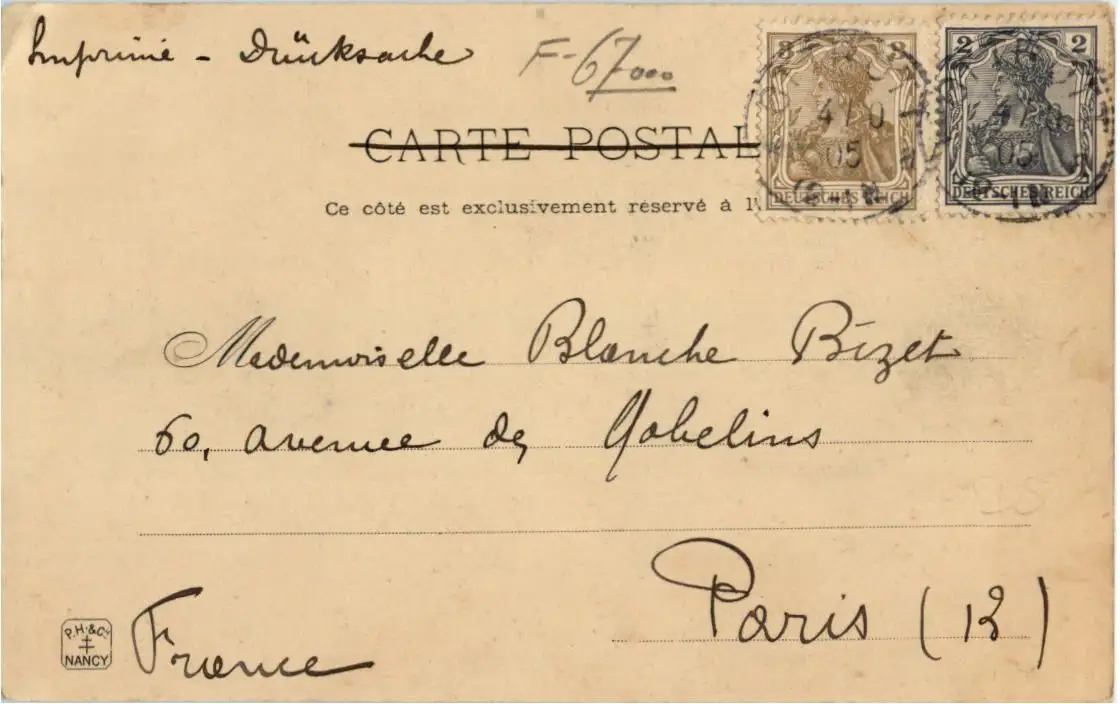 Imprimé - Drücksache
F-67000
3 3
DEUTSCHES REICH
2 2
DEUTSCHES REICH
CARTE POSTAL
Ce côté est exclusivement réservé à l'
Mademoiselle Blanche Bizet
60, avenue des Gobelins
Paris (13)
France
P.H.&Cie
NANCY